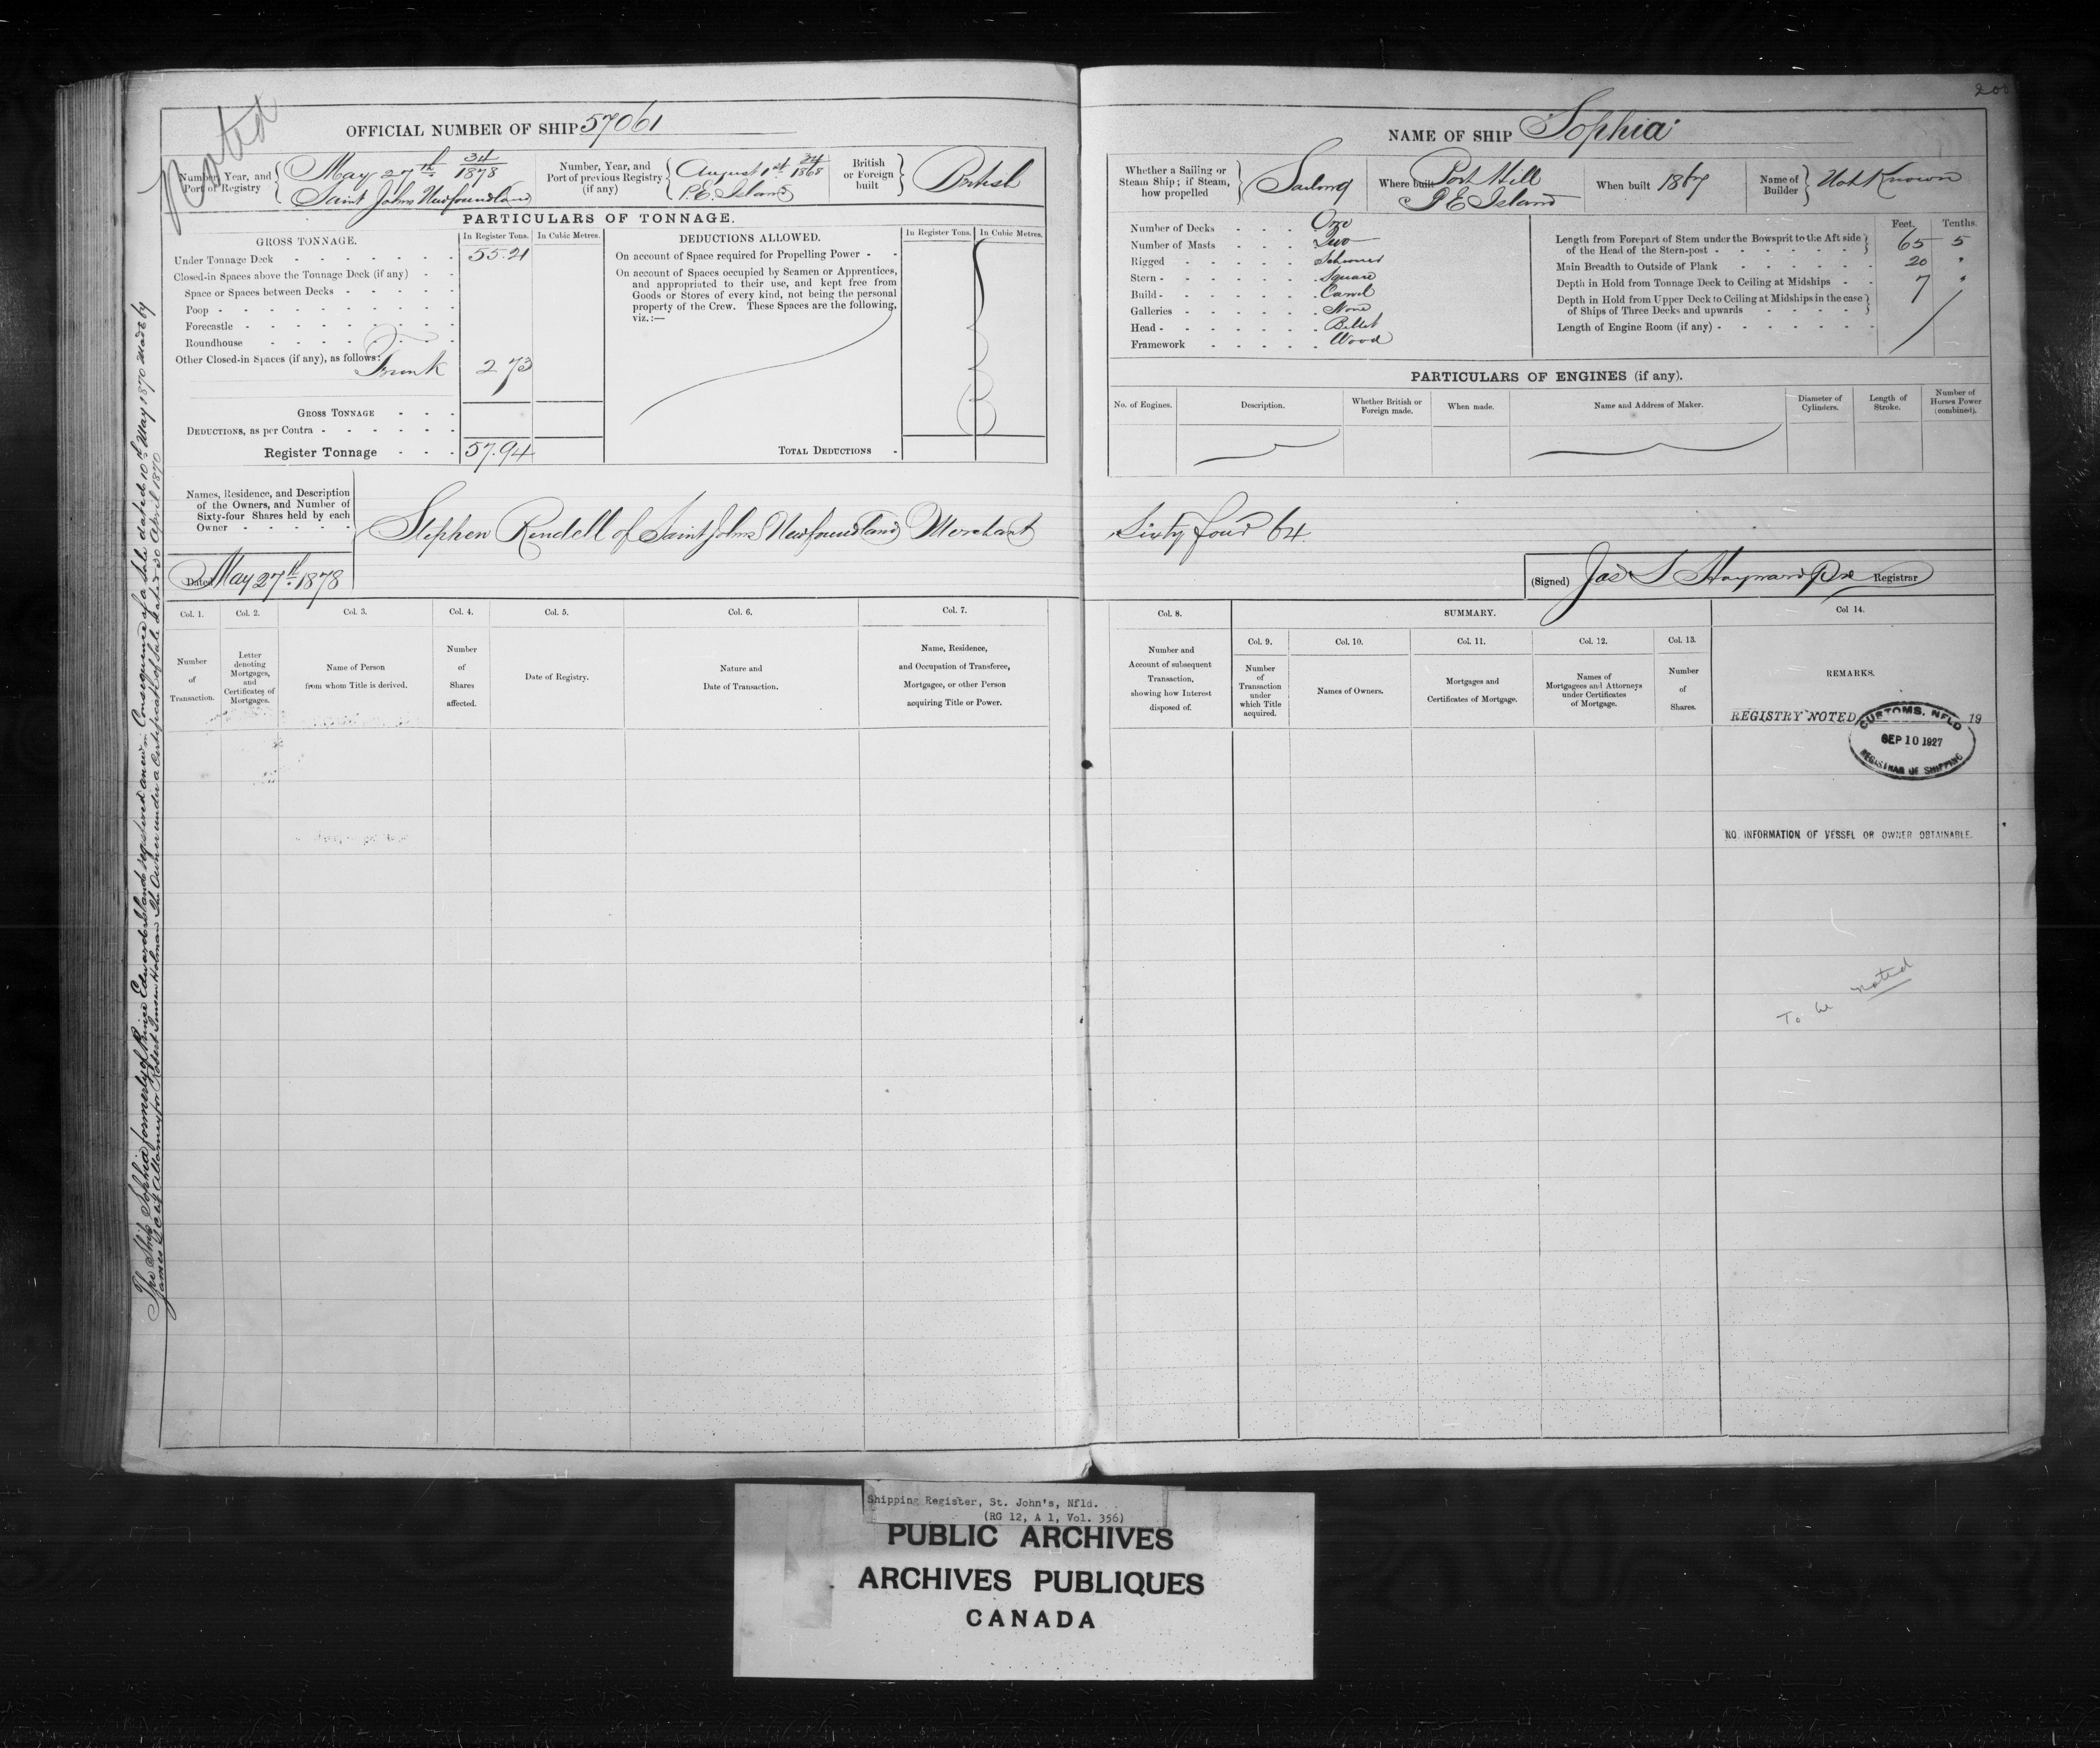 200
Noted
OFFICIAL NUMBER OF SHIP 57061
Number, Year, and Port of Registry { May 27th 34/1878 Saint Johns Newfoundland
Number, Year, and Port of previous Registry (if any) { August 1st 34/1868 P.E. Island
British or Foreign built } British
PARTICULARS OF TONNAGE.
GROSS TONNAGE. In Register Tons. In Cubic Metres.
Under Tonnage Deck 55.21
Closed-in Spaces above the Tonnage Deck (if any)
Space or Spaces between Decks
Poop
Forecastle
Roundhouse
Other Closed-in Spaces (if any), as follows:
Trunk 2 73
GROSS TONNAGE
DEDUCTIONS, as per Contra
Register Tonnage 57.94
DEDUCTIONS ALLOWED. In Register Tons. In Cubic Metres.
On account of Space required for Propelling Power
On account of Spaces occupied by Seamen or Apprentices,
and appropriated to their use, and kept free from
Goods or Stores of every kind, not being the personal
property of the Crew. These Spaces are the following,
viz.:—
TOTAL DEDUCTIONS
NAME OF SHIP Sophia
Whether a Sailing or Steam Ship; if Steam, how propelled } Sailing
Where built Port Hill P E Island
When built 1867
Name of Builder } Not Known
Number of Decks One
Number of Masts Two
Rigged Schooner
Stern Square
Build Carvel
Galleries None
Head Billet
Framework Wood
Feet. Tenths.
Length from Forepart of Stem under the Bowsprit to the Aft side
of the Head of the Stern-post } 65 5
Main Breadth to Outside of Plank 20 "
Depth in Hold from Tonnage Deck to Ceiling at Midships 7 "
Depth in Hold from Upper Deck to Ceiling at Midships in the case
of Ships of Three Decks and upwards }
Length of Engine Room (if any)
PARTICULARS OF ENGINES (if any).
No. of Engines. Description. Whether British or Foreign made. When made. Name and Address of Maker. Diameter of Cylinders. Length of Stroke. Number of Horses Power (combined).
Names, Residence, and Description
of the Owners, and Number of
Sixty-four Shares held by each
Owner
Stephen Rendell of Saint Johns Newfoundland Merchant Sixty four 64
Dated May 27th 1878
(Signed) Jas S Hayward Registrar
Col. 1. Col. 2. Col. 3. Col. 4. Col. 5. Col. 6. Col. 7. Col. 8. SUMMARY. Col 14.
Col. 9. Col. 10. Col. 11. Col. 12. Col. 13.
Number of Transaction.
Letter denoting Mortgages, and Certificates of Mortgages.
Name of Person from whom Title is derived.
Number of Shares affected.
Date of Registry.
Nature and Date of Transaction.
Name, Residence, and Occupation of Transferee, Mortgagee, or other Person acquiring Title or Power.
Number and Account of subsequent Transaction, showing how Interest disposed of.
Number of Transaction under which Title acquired.
Names of Owners.
Mortgages and Certificates of Mortgage.
Names of Mortgagees and Attorneys under Certificates of Mortgage.
Number of Shares.
REMARKS.
REGISTRY NOTED 19
CUSTOMS. NFLD
SEP 10 1927
REGISTRAR OF SHIPPING
NO INFORMATION OF VESSEL OR OWNER OBTAINABLE.
To be noted
The Ship Sophia formerly of Prince Edward Island registered anew in Consequence of a Sale dated 10th May 1870 Made by
James Attorney for Robert Holman The Owner under a Certificate of Sale dated 30 April 1870
Shipping Register, St. John's, Nfld.
(RG 12, A 1, Vol. 356)
PUBLIC ARCHIVES
ARCHIVES PUBLIQUES
CANADA